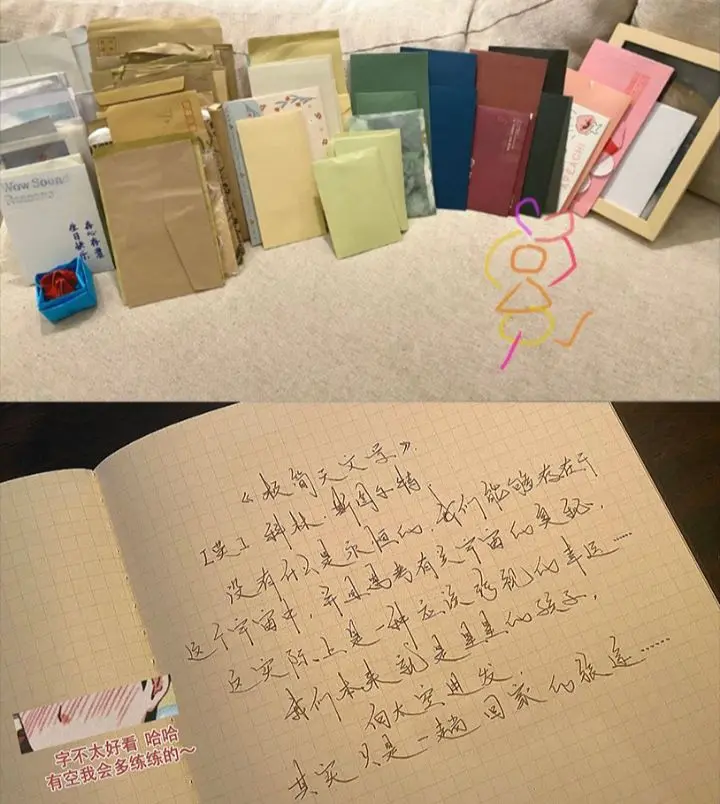 生日快乐
APEACH
《极简天文学》
[英] 科林·斯图尔特:
没有什么是永恒的,我们能够存在于
这个宇宙中,并且思考有关宇宙的奥秘,
这实际上是一种应该珍视的幸运……
我们本来就是星星的孩子,
向太空出发,
其实只是一趟回家的旅途……
字不太好看 哈哈
有空我会多练练的~